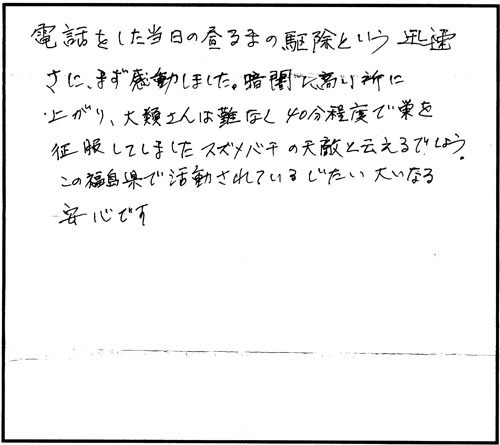 電話をした当日の昼るまの駆除という 迅速
さに、まず感動しました。暗闇に高い所に
上がり、大類さんは難なく40分程度で巣を
征服してしましたスズメバチの天敵と云えるでしょう。
この福島県で活動されているじたい 大いなる
安心です